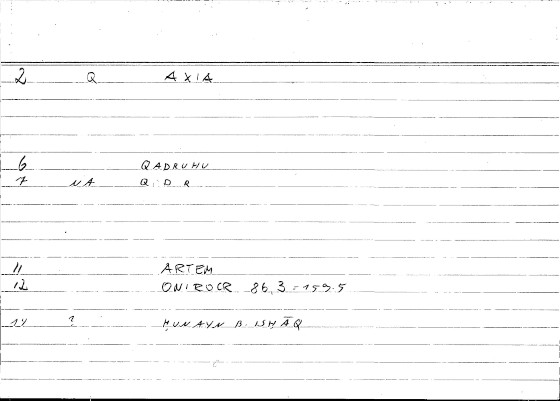 2 Q AXIA
6 QADRUHU
7 NA Q D R
11 ARTEM
12 ONIROCR 86,3 = 159.5
14 ? ḤUNAYN B. ISḤĀQ